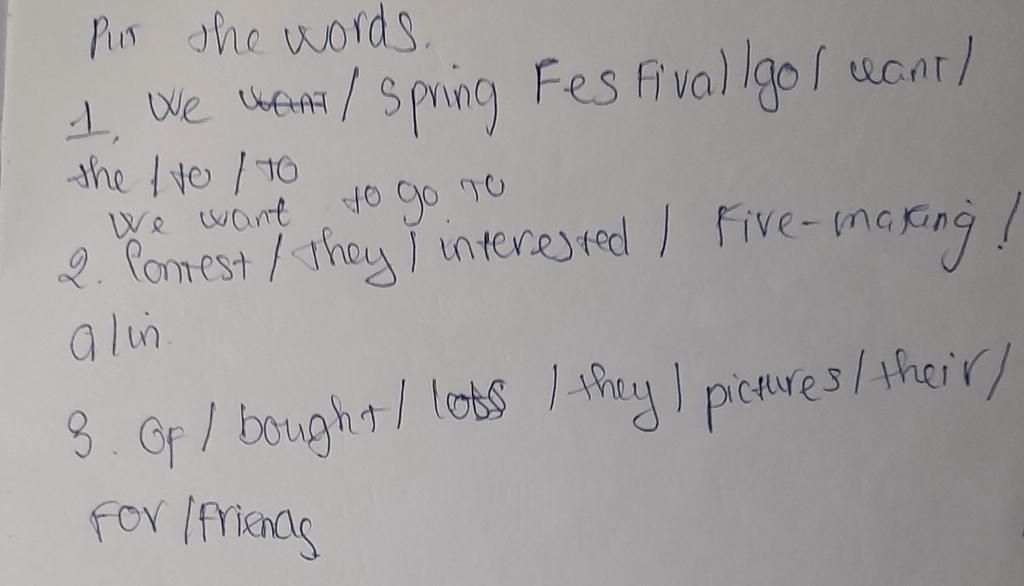 Put the words.
1. We want / Spring Festival / go / want /
the / to / to
We want to go to
2. Contest / they / interested / Fire-making /
a / in.
3. Of / bought / lots / they / pictures / their /
For / Friends